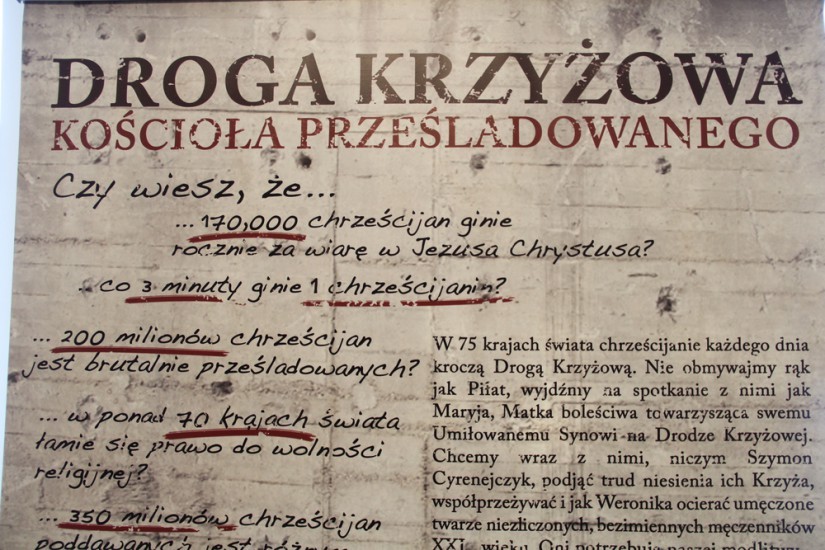 DROGA KRZYŻOWA
KOŚCIOŁA PRZEŚLADOWANEGO
Czy wiesz, że...
...170,000 chrześcijan ginie
rocznie za wiarę w Jezusa Chrystusa?
...co 3 minuty ginie 1 chrześcijanin?
... 200 milionów chrześcijan
jest brutalnie prześladowanych?
... w ponad 70 krajach świata
łamie się prawo do wolności
religijnej?
... 350 milionów chrześcijan
poddawanych jest różnym
W 75 krajach świata chrześcijanie każdego dnia
kroczą Drogą Krzyżową. Nie obmywajmy rąk
jak Piłat, wyjdźmy na spotkanie z nimi jak
Maryja, Matka boleściwa towarzysząca swemu
Umiłowanemu Synowi na Drodze Krzyżowej.
Chcemy wraz z nimi, niczym Szymon
Cyrenejczyk, podjąć trud niesienia ich Krzyża,
współprzeżywać i jak Weronika ocierać umęczone
twarze niezliczonych, bezimiennych męczenników
XXI wieku. Oni potrzebują naszej modlitwy